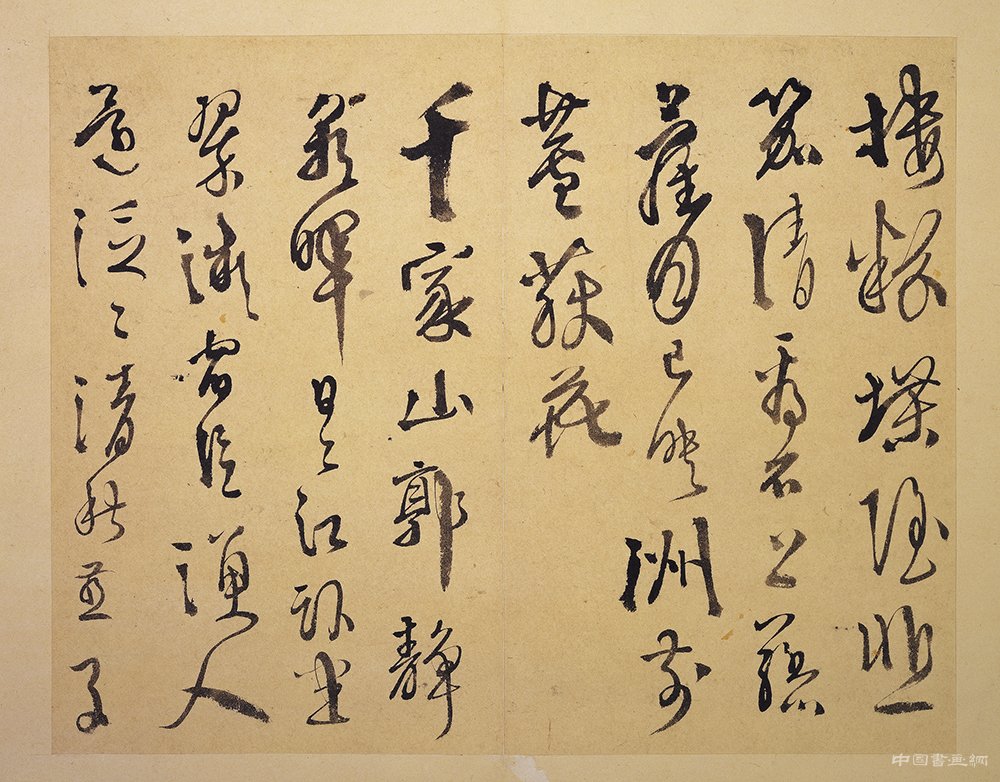 樓粉堞隱悲
笳請看石上藤
蘿月已映洲前
蘆荻花
千家山郭靜
朝暉日〻江坐
翠微宿信漁人
還泛〻清秋燕子
中國書畫網